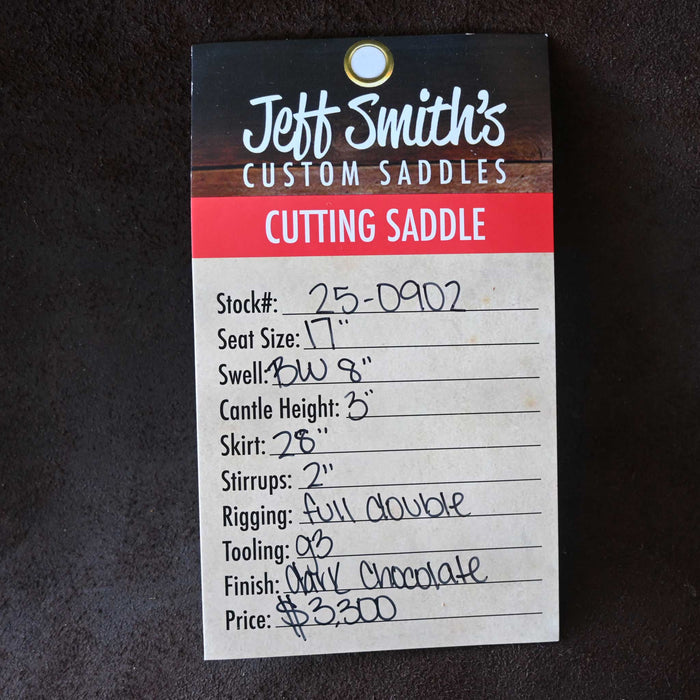 Jeff Smith's
CUSTOM SADDLES
CUTTING SADDLE
Stock#: 25-0902
Seat Size: 17"
Swell: BW 8"
Cantle Height: 3"
Skirt: 28"
Stirrups: 2"
Rigging: full double
Tooling: 93
Finish: dark chocolate
Price: $3,300